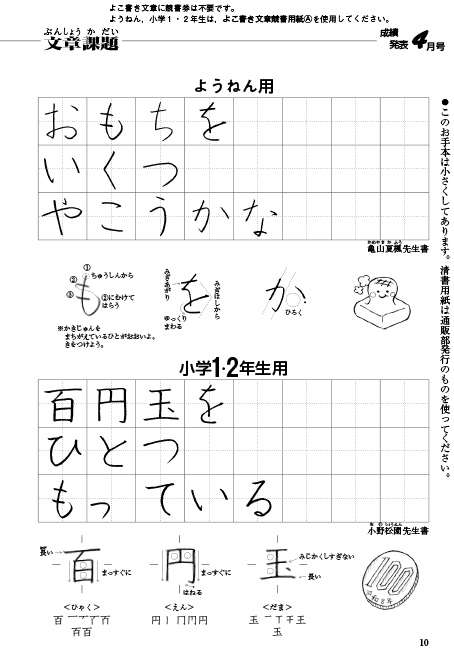 よこ書き文章に競書券は不要です。
ようねん、小学1・2年生は、よこ書き文章競書用紙Ⓐを使用してください。
ぶんしょうかだい
文章課題
成績発表4月号
ようねん用
おもちを
いくつ
やこうかな
かめやまかよう
亀山夏楓先生書
●このお手本は小さくしてあります。清書用紙は通販部発行のものを使ってください。
① ちゅうしんから
②
③
も
②にむけて
はらう
※かきじゅんを
まちがえているひとがおおいよ。
きをつけよう。
みぎあがり
を
みぎはしから
ゆっくり
まわる
か
ひろく
小学1・2年生用
百円玉を
ひとつ
もっている
小野松園先生書
長い
百
まっすぐに
<ひゃく>
百一丆百
百百
円
まっすぐに
はねる
<えん>
円丨冂冂円
玉
みじかくしすぎない
長い
<だま>
玉一丅干王
玉
100
令和8年
10